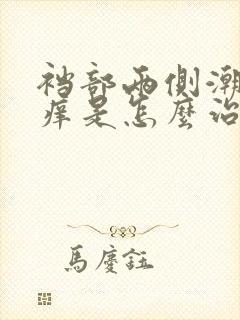 裆部两侧潮
痒是怎麼治
馬慶鈺